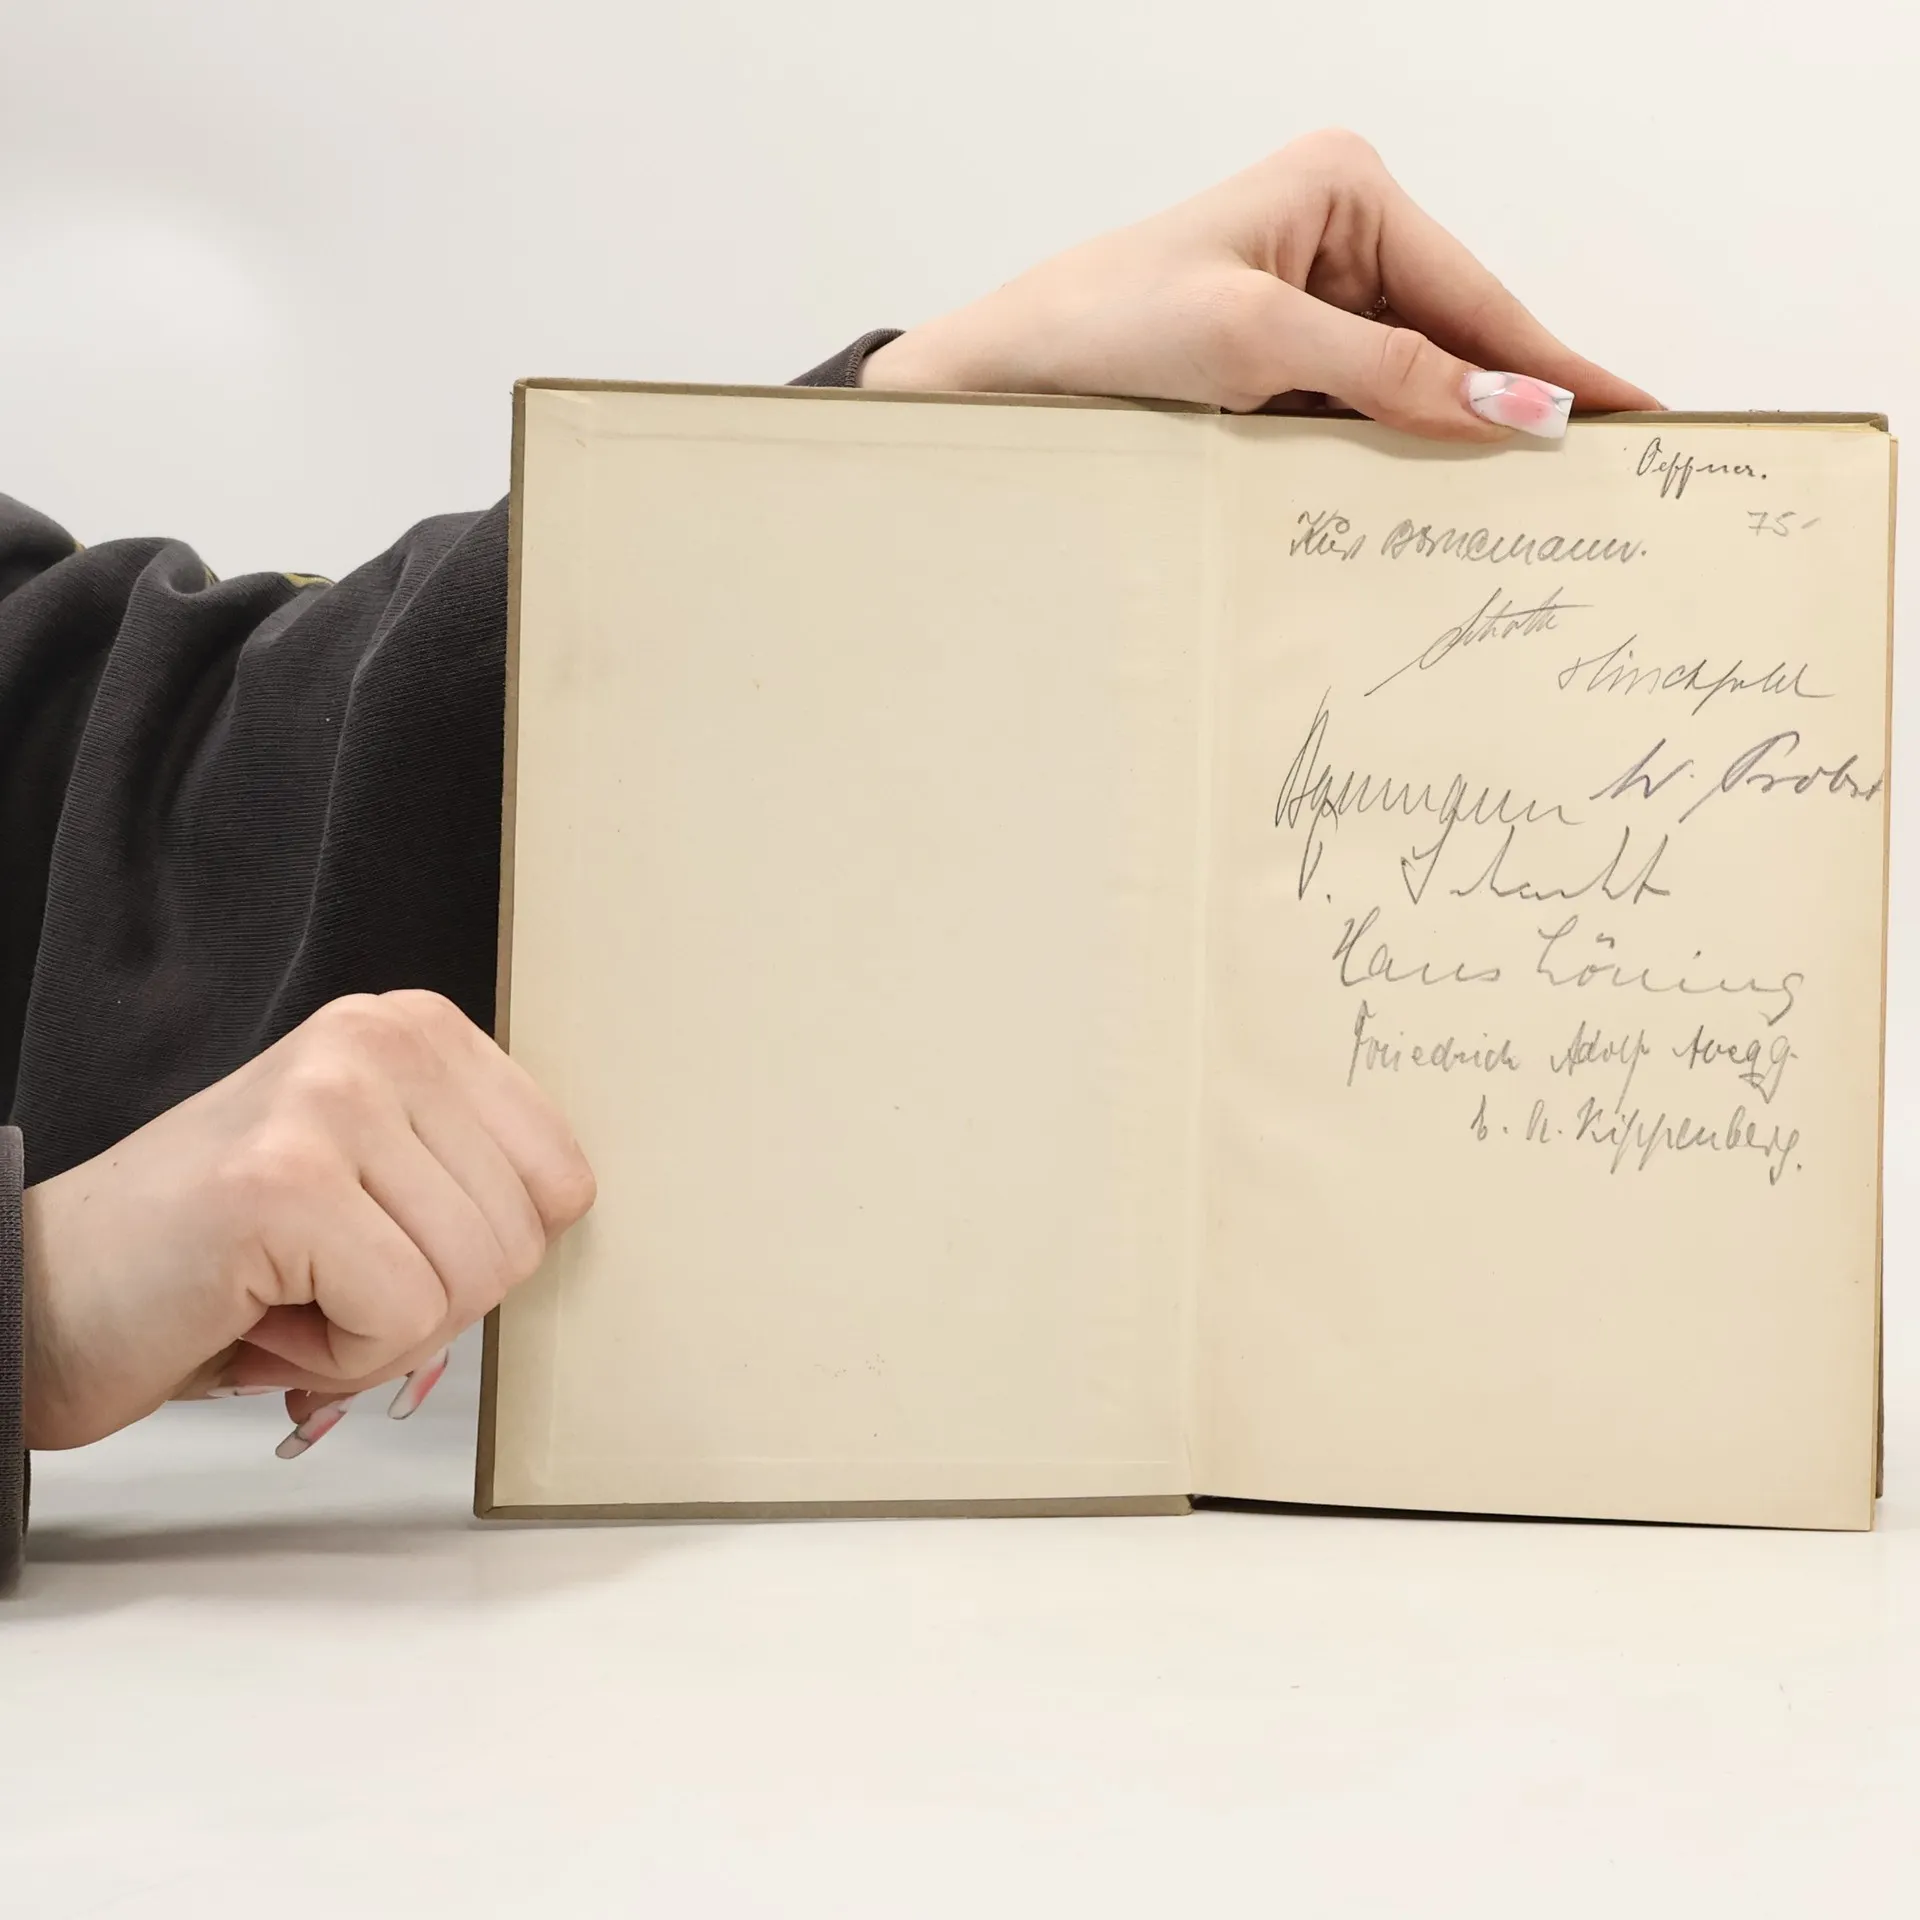 Oeffner.
75-
Kurt Bornemann.
Schotte
Hirschfeld
Baumann W. Probst
P. Schacht
Hans Löning
Friedrich Adolf Avegg.
C. A. Kippenberg.